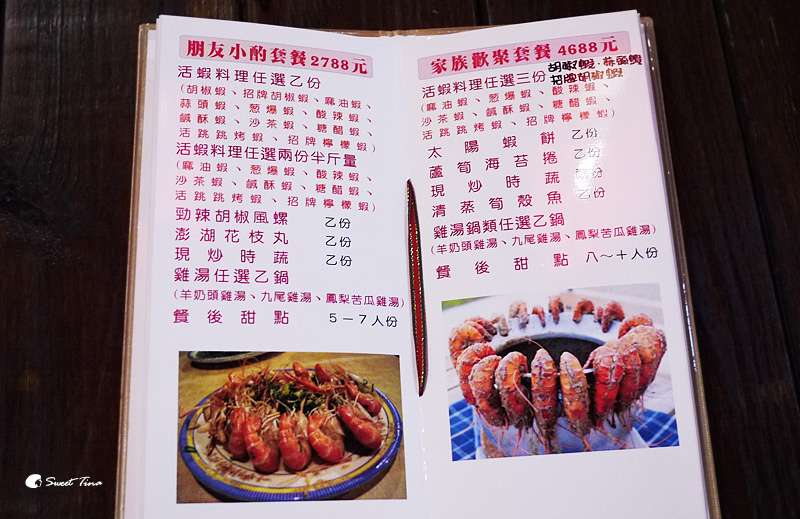 朋友小酌套餐2788元
活蝦料理任選乙份
(胡椒蝦、招牌胡椒蝦、麻油蝦、
蒜頭蝦、葱爆蝦、酸辣蝦、
鹹酥蝦、沙茶蝦、糖醋蝦、
活跳跳烤蝦、招牌檸檬蝦)
活蝦料理任選兩份半斤量
(麻油蝦、葱爆蝦、酸辣蝦、
沙茶蝦、鹹酥蝦、糖醋蝦、
活跳跳烤蝦、招牌檸檬蝦)
勁辣胡椒風螺 乙份
澎湖花枝丸 乙份
現炒時蔬 乙份
雞湯任選乙鍋
(羊奶頭雞湯、九尾雞湯、鳳梨苦瓜雞湯)
餐後甜點 5－7人份
家族歡聚套餐 4688元
活蝦料理任選三份 胡椒蝦·蒜頭蝦
招牌胡椒蝦
(麻油蝦、葱爆蝦、酸辣蝦、
沙茶蝦、鹹酥蝦、糖醋蝦、
活跳跳烤蝦、招牌檸檬蝦)
太陽蝦餅 乙份
蘆筍海苔捲 乙份
現炒時蔬 乙份
清蒸筍殼魚 乙份
雞湯鍋類任選乙鍋
(羊奶頭雞湯、九尾雞湯、鳳梨苦瓜雞湯)
餐後甜點 八～十人份
Sweet Tina